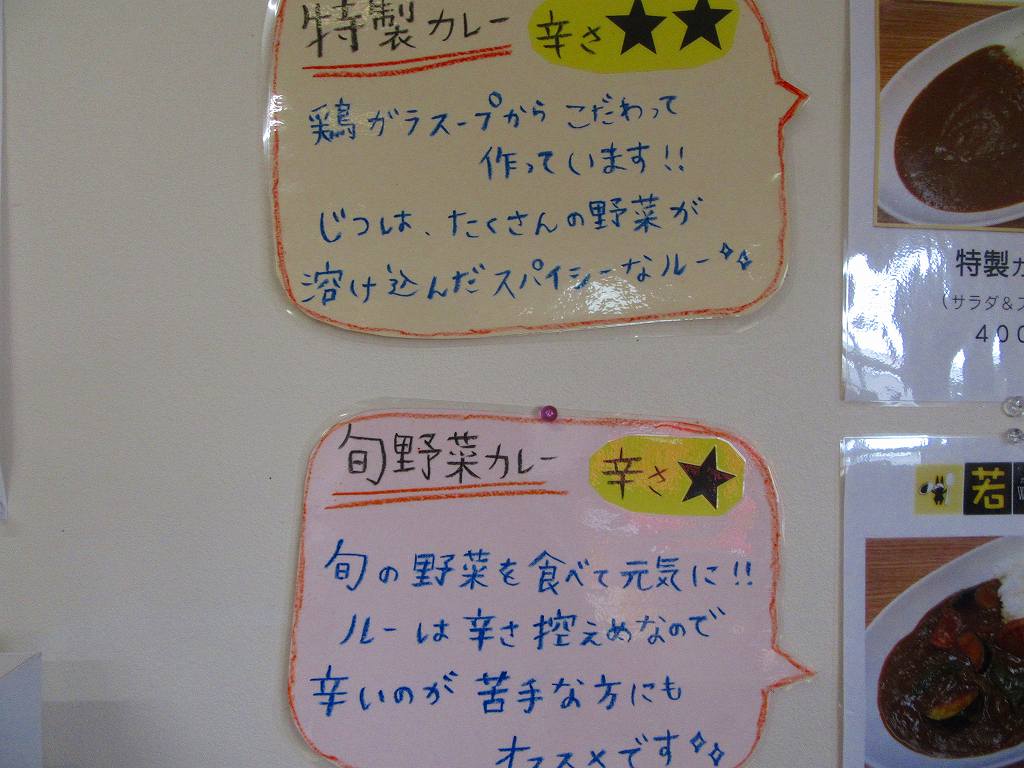 特製カレー 辛さ★★
鶏ガラスープから こだわって
作っています!!
じつは、たくさんの野菜が
溶け込んだスパイシーなルー
旬野菜カレー 辛さ★
旬の野菜を食べて元気に!!
ルーは辛さ控えめなので
辛いのが苦手な方にも
オススメです
特製カ
(サラダ&ス
400
若